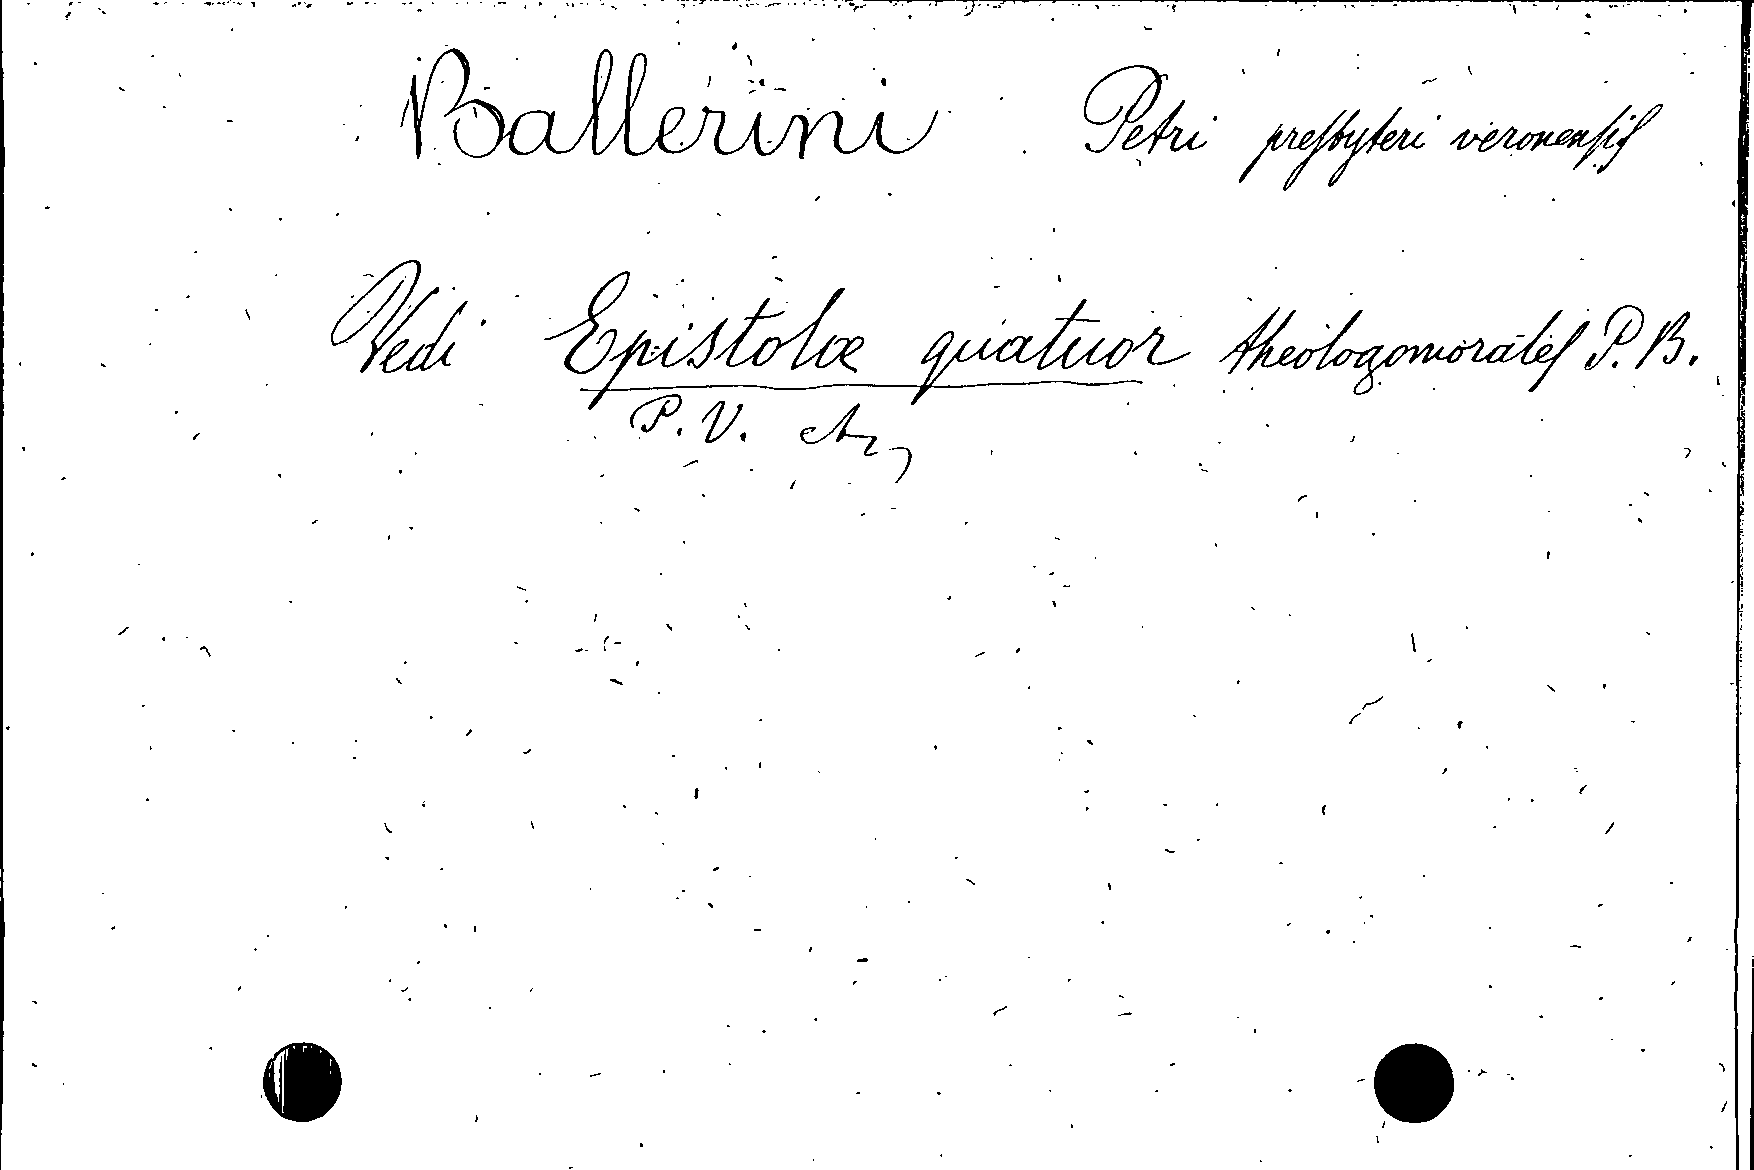 Ballerini Petri presbyteri veronensis
Vedi Epistolæ quatuor theologomorales P. B.
P. V. etc,